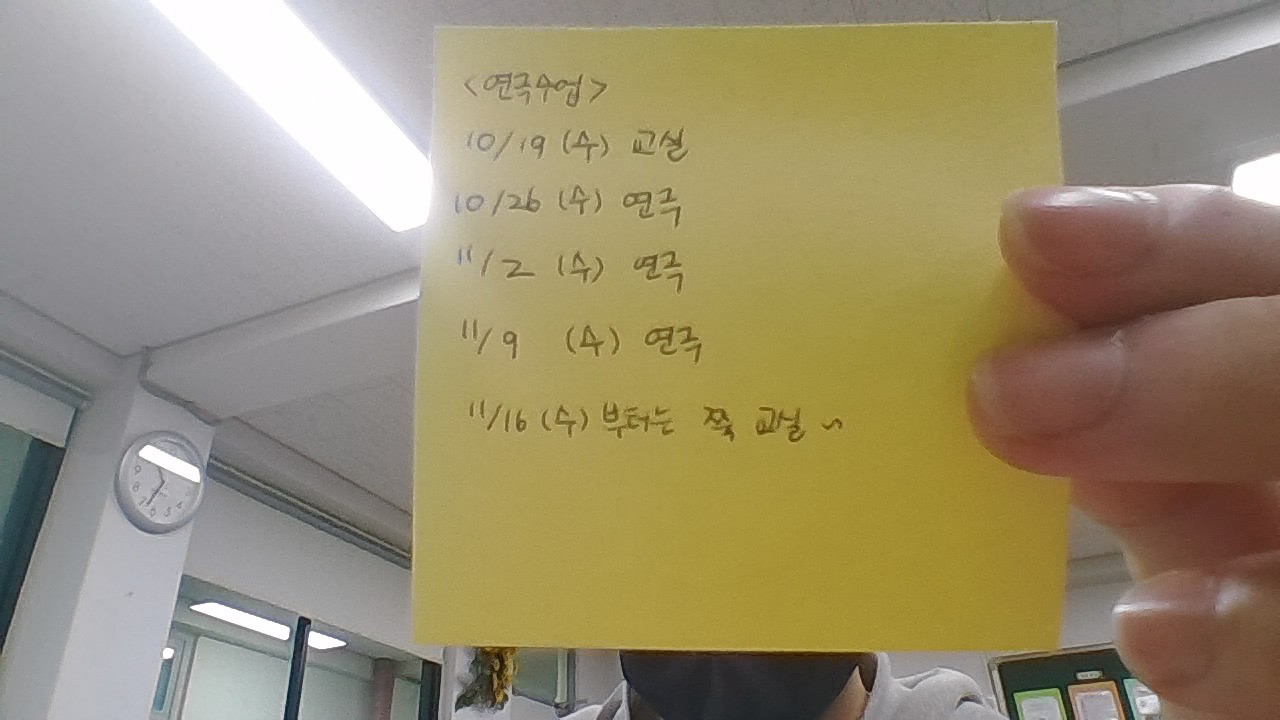 <연극수업>
10/19 (수) 교실
10/26 (수) 연극
11/2 (수) 연극
11/9 (수) 연극
11/16 (수) 부터는 쭉 교실~